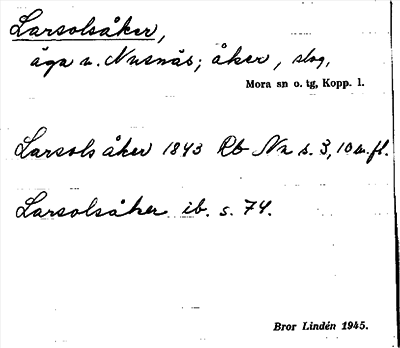 Larsolsåker,
äga n. Nusnäs; åker, skog,
Mora sn o. tg, Kopp. l.
Larsols åker 1843 Rb Nn s. 3, 10 m.fl.
Larsolsåker ib. s. 74.
Bror Lindén 1945.